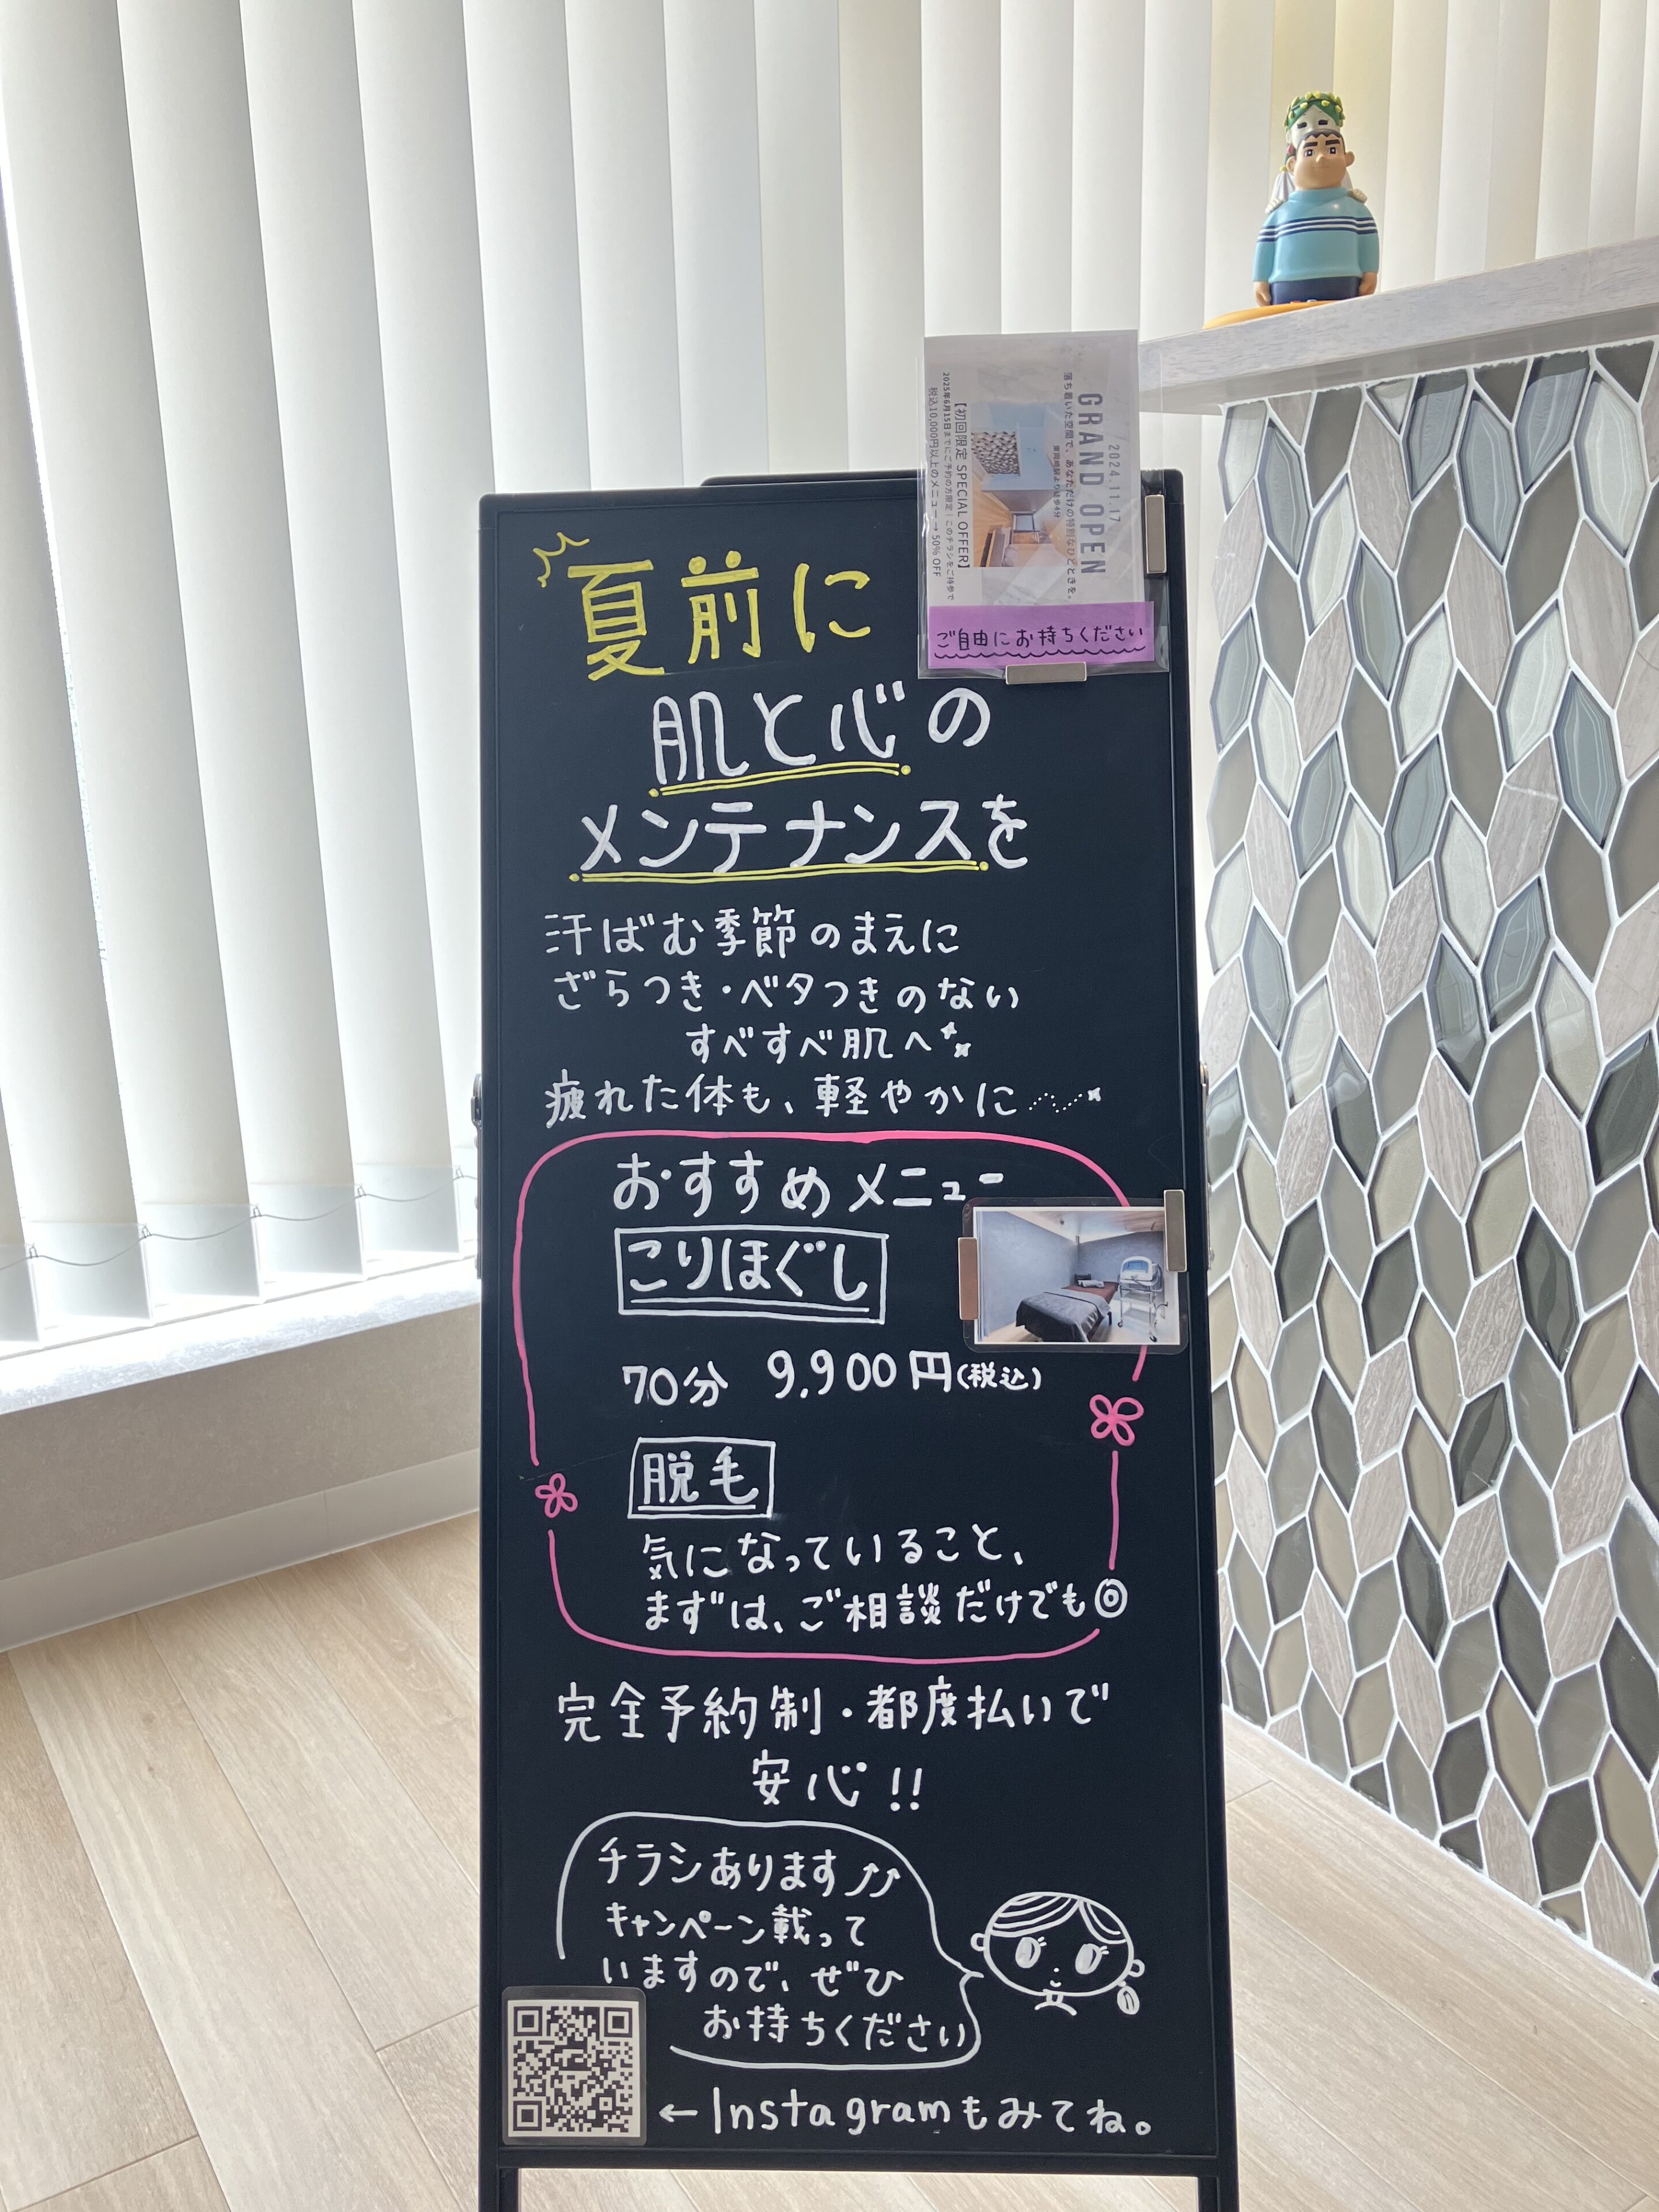 夏前に
肌と心の
メンテナンスを
汗ばむ季節のまえに
ざらつき・ベタつきのない
すべすべ肌へ
疲れた体も、軽やかに
おすすめメニュー
こりほぐし
70分 9,900円(税込)
脱毛
気になっていること、
まずは、ご相談だけでも◎
完全予約制・都度払いで
安心!!
チラシあります
キャンペーン載って
いますので、ぜひ
お持ちください
←Instagramもみてね。
2024.11.17
GRAND OPEN
落ち着いた空間で、あなただけの特別なひとときを。
東岡崎駅より徒歩4分
【初回限定 SPECIAL OFFER】
2025年6月15日までにご予約の方限定！このチラシをご持参で
税込10,000円以上のメニュー→50% OFF
ご自由にお持ちください